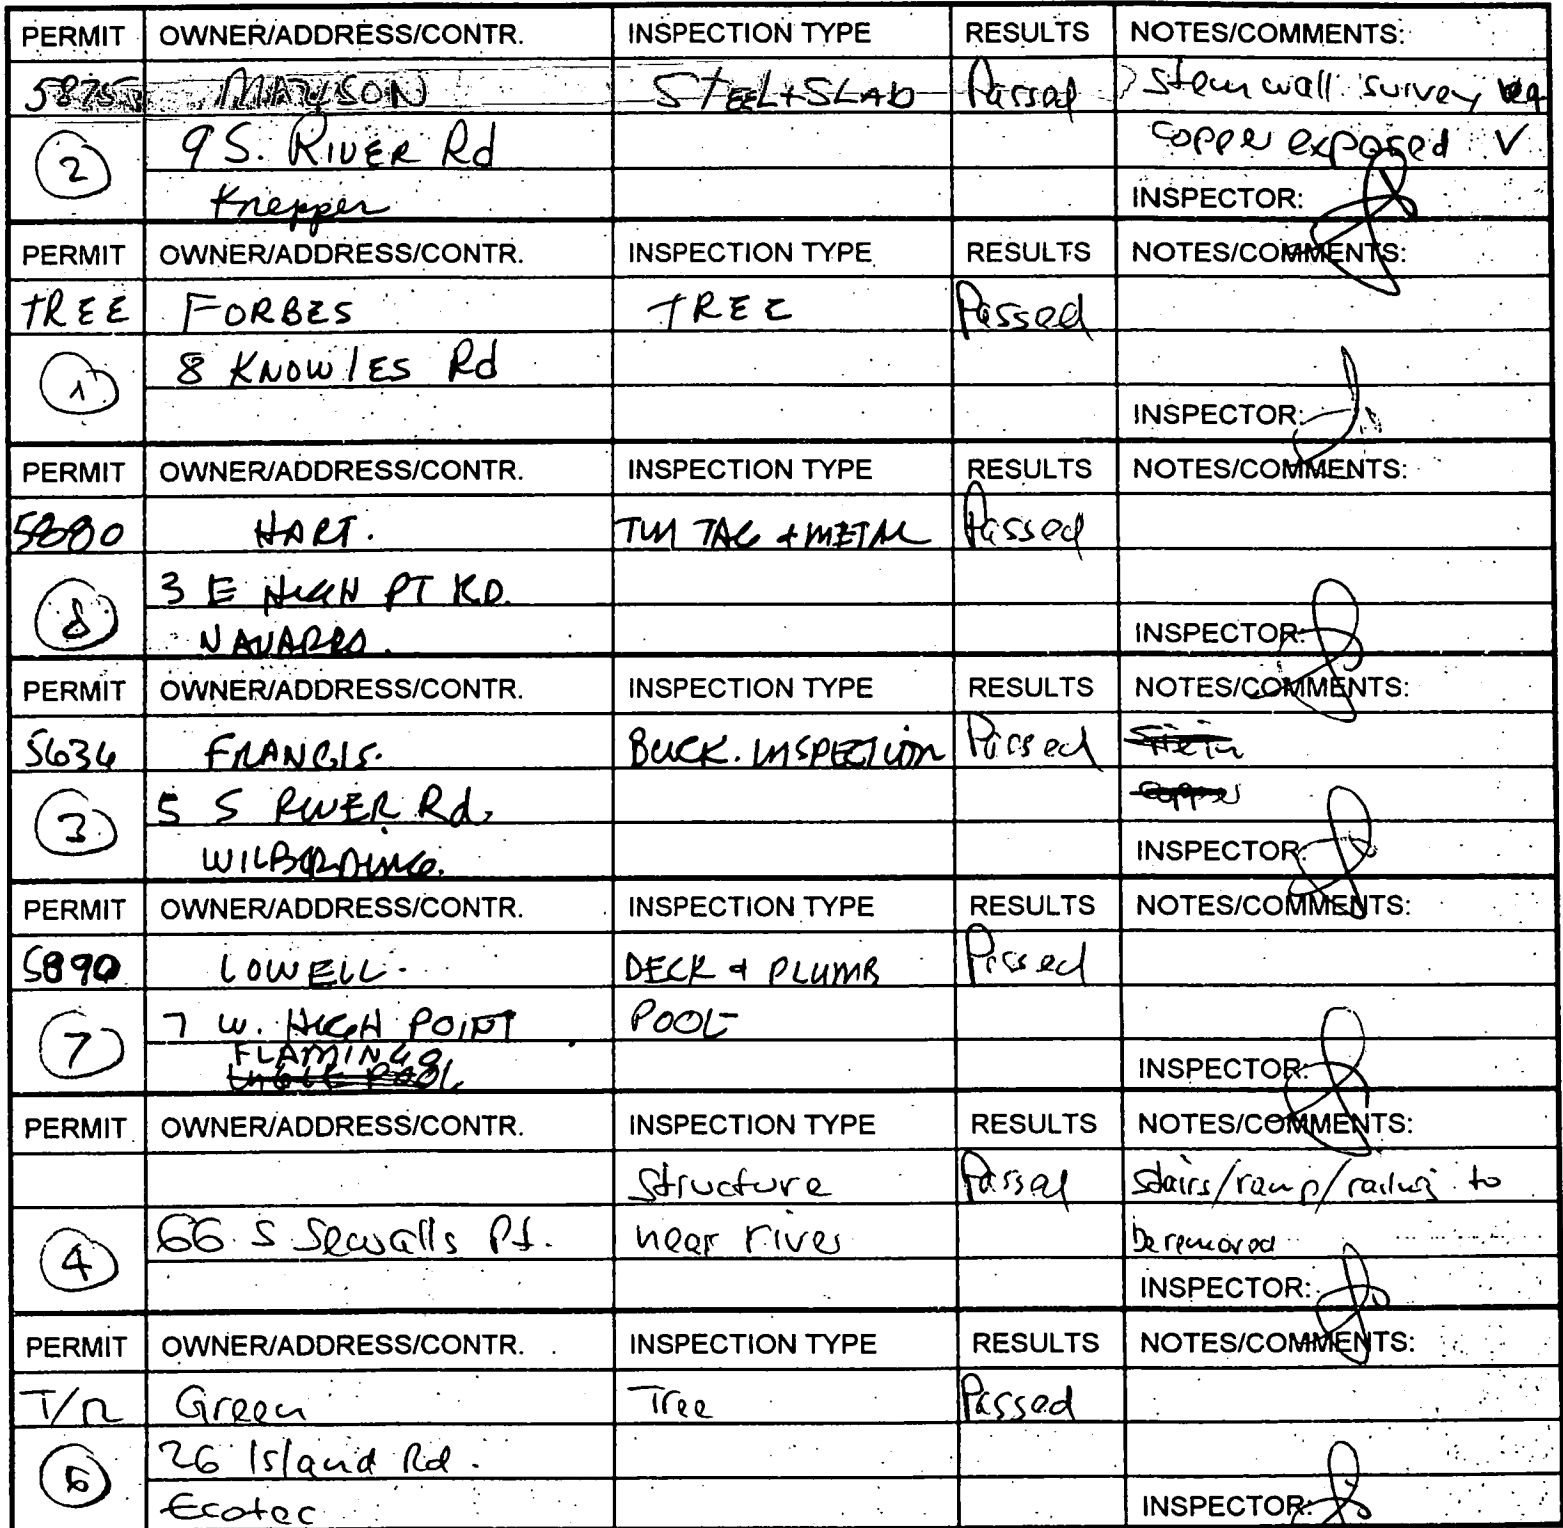 PERMIT OWNER/ADDRESS/CONTR. INSPECTION TYPE RESULTS NOTES/COMMENTS:
5875 MAYSON STEEL+SLAB Passed stemwall survey
2 9 S. RIVER Rd copper exposed V
Knepper INSPECTOR:
PERMIT OWNER/ADDRESS/CONTR. INSPECTION TYPE RESULTS NOTES/COMMENTS:
TREE FORBES TREE Passed
1 8 KNOWLES Rd
INSPECTOR:
PERMIT OWNER/ADDRESS/CONTR. INSPECTION TYPE RESULTS NOTES/COMMENTS:
5880 HART. TIN TAG + METAL Passed
8 3 E HIGH PT RD.
NAVARRO. INSPECTOR:
PERMIT OWNER/ADDRESS/CONTR. INSPECTION TYPE RESULTS NOTES/COMMENTS:
5634 FRANCIS. BUCK. INSPECTION Passed
3 5 S RIVER Rd. copper
WILBERDING. INSPECTOR:
PERMIT OWNER/ADDRESS/CONTR. INSPECTION TYPE RESULTS NOTES/COMMENTS:
5890 LOWELL. DECK & PLUMB Passed
7 7 W. HIGH POINT POOL
FLAMINGO INSPECTOR:
PERMIT OWNER/ADDRESS/CONTR. INSPECTION TYPE RESULTS NOTES/COMMENTS:
Structure Passed stairs/ramp/railing to
4 66 S Sewalls Pt. near river be removed
INSPECTOR:
PERMIT OWNER/ADDRESS/CONTR. INSPECTION TYPE RESULTS NOTES/COMMENTS:
T/R Green Tree Passed
6 26 Island Rd.
Ecotec INSPECTOR: